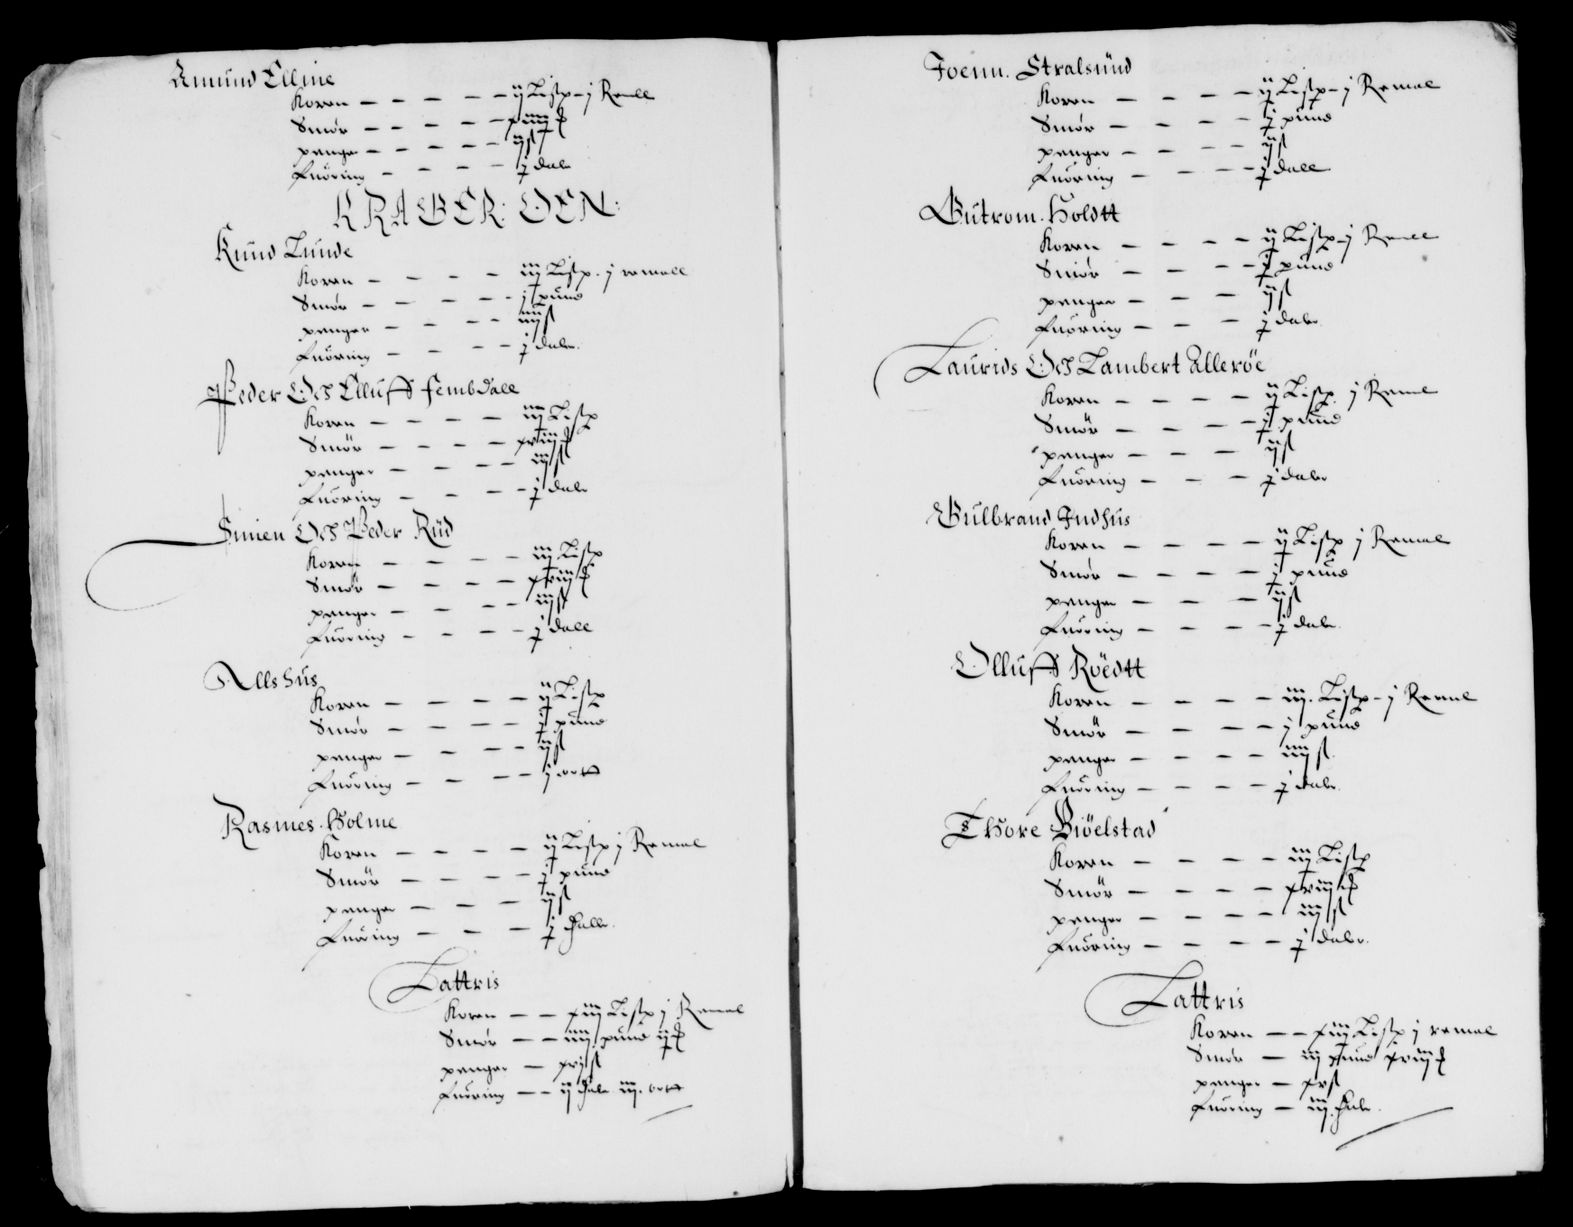 Amund Elline
Koren – – – – – ij Lisp – j Remell
Smör – – – – –
penger – – – – – ij ß
fuöring – – – – j daler
KRAGER: ÖEN:
Knud Lunde
Koren – – – – iij Lisp. j remell
Smör – – – – – j pund
penger – – – – iiij ß
fuöring – – – – j daler
Peder Och Elluff fembdall
Koren – – – – iij Lisp
Smör – – – – xviij
penger – – – – iij ß
fuöring – – – – j daler
Simen Och Peder Rüd
Koren – – – – iij Lisp
Smör – – – – xviij
penger – – – – iij ß
fuöring – – – – j dall
Allshüs
Koren – – – – ij Lisp
Smör – – – – j pund
penger – – – – ij ß
fuöring – – – – j ortt
Rasmes Holme
Koren – – – – ij Lisp j Remel
Smör – – – – j pund
penger – – – ij ß
fuöring – – – j daller
Lattris
Koren – – xiij Lisp j Remel
Smör – – iiij pund
penger – xvj ß
fuöring – – ij daler iij ortt
Joenn. Stralsünd
Koren – – – – ij Lisp – j Remel
Smör – – – – j pund
penger – – – – ij ß
fuöring – – – – j dall
Gutrom. Holdtt
Koren – – – – ij Lisp – j Remel
Smör – – – – j pund
penger – – – ij ß
fuöring – – – j daler
Laurids Och Lambert Alleröe
Koren – – – – ij Lisp. j Remel
Smör – – – – j pund
penger – – – ij ß
fuöring – – – j daler
Gulbrand Indhüs
Koren – – – – ij Lisp j Remel
Smör – – – – j pund
penger – – – ij ß
fuöring – – – – j daler
Olluff Röedtt
Koren – – – – iij. Lisp – j Remel
Smör – – – – j pund
penger – – – – iiij ß
fuöring – – – – j daler
Thore Giöelstad
Koren – – – – iij Lisp
Smör – – – – xviij
penger – – – – iij ß
fuöring – – – – j daler
Lattris
Koren – – Lisp j remel
Smör – iij pund xviij
penger – xv ß
fuöring – iij daler